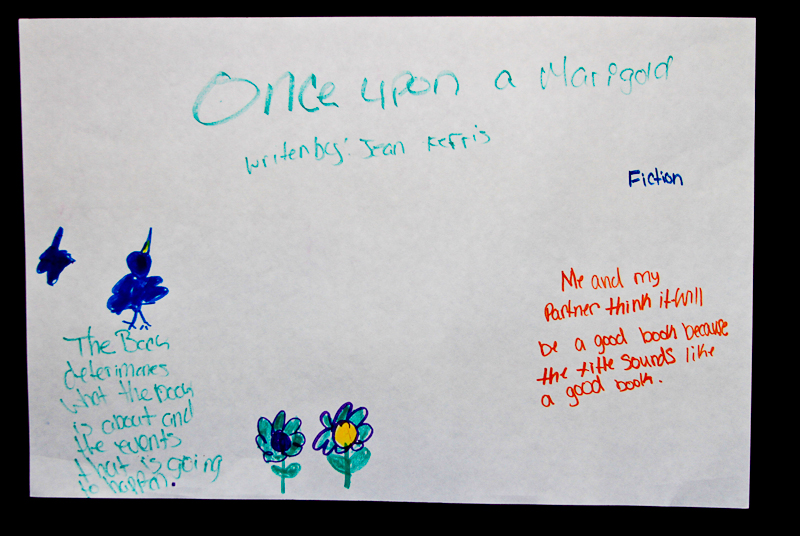 Once upon a Marigold
writen by: Jean Ferris
Fiction
Me and my
Partner think it will
be a good book because
the title sounds like
a good book.
The Book
deterimanes
what the book
is about and
the events
that is going
to happen.